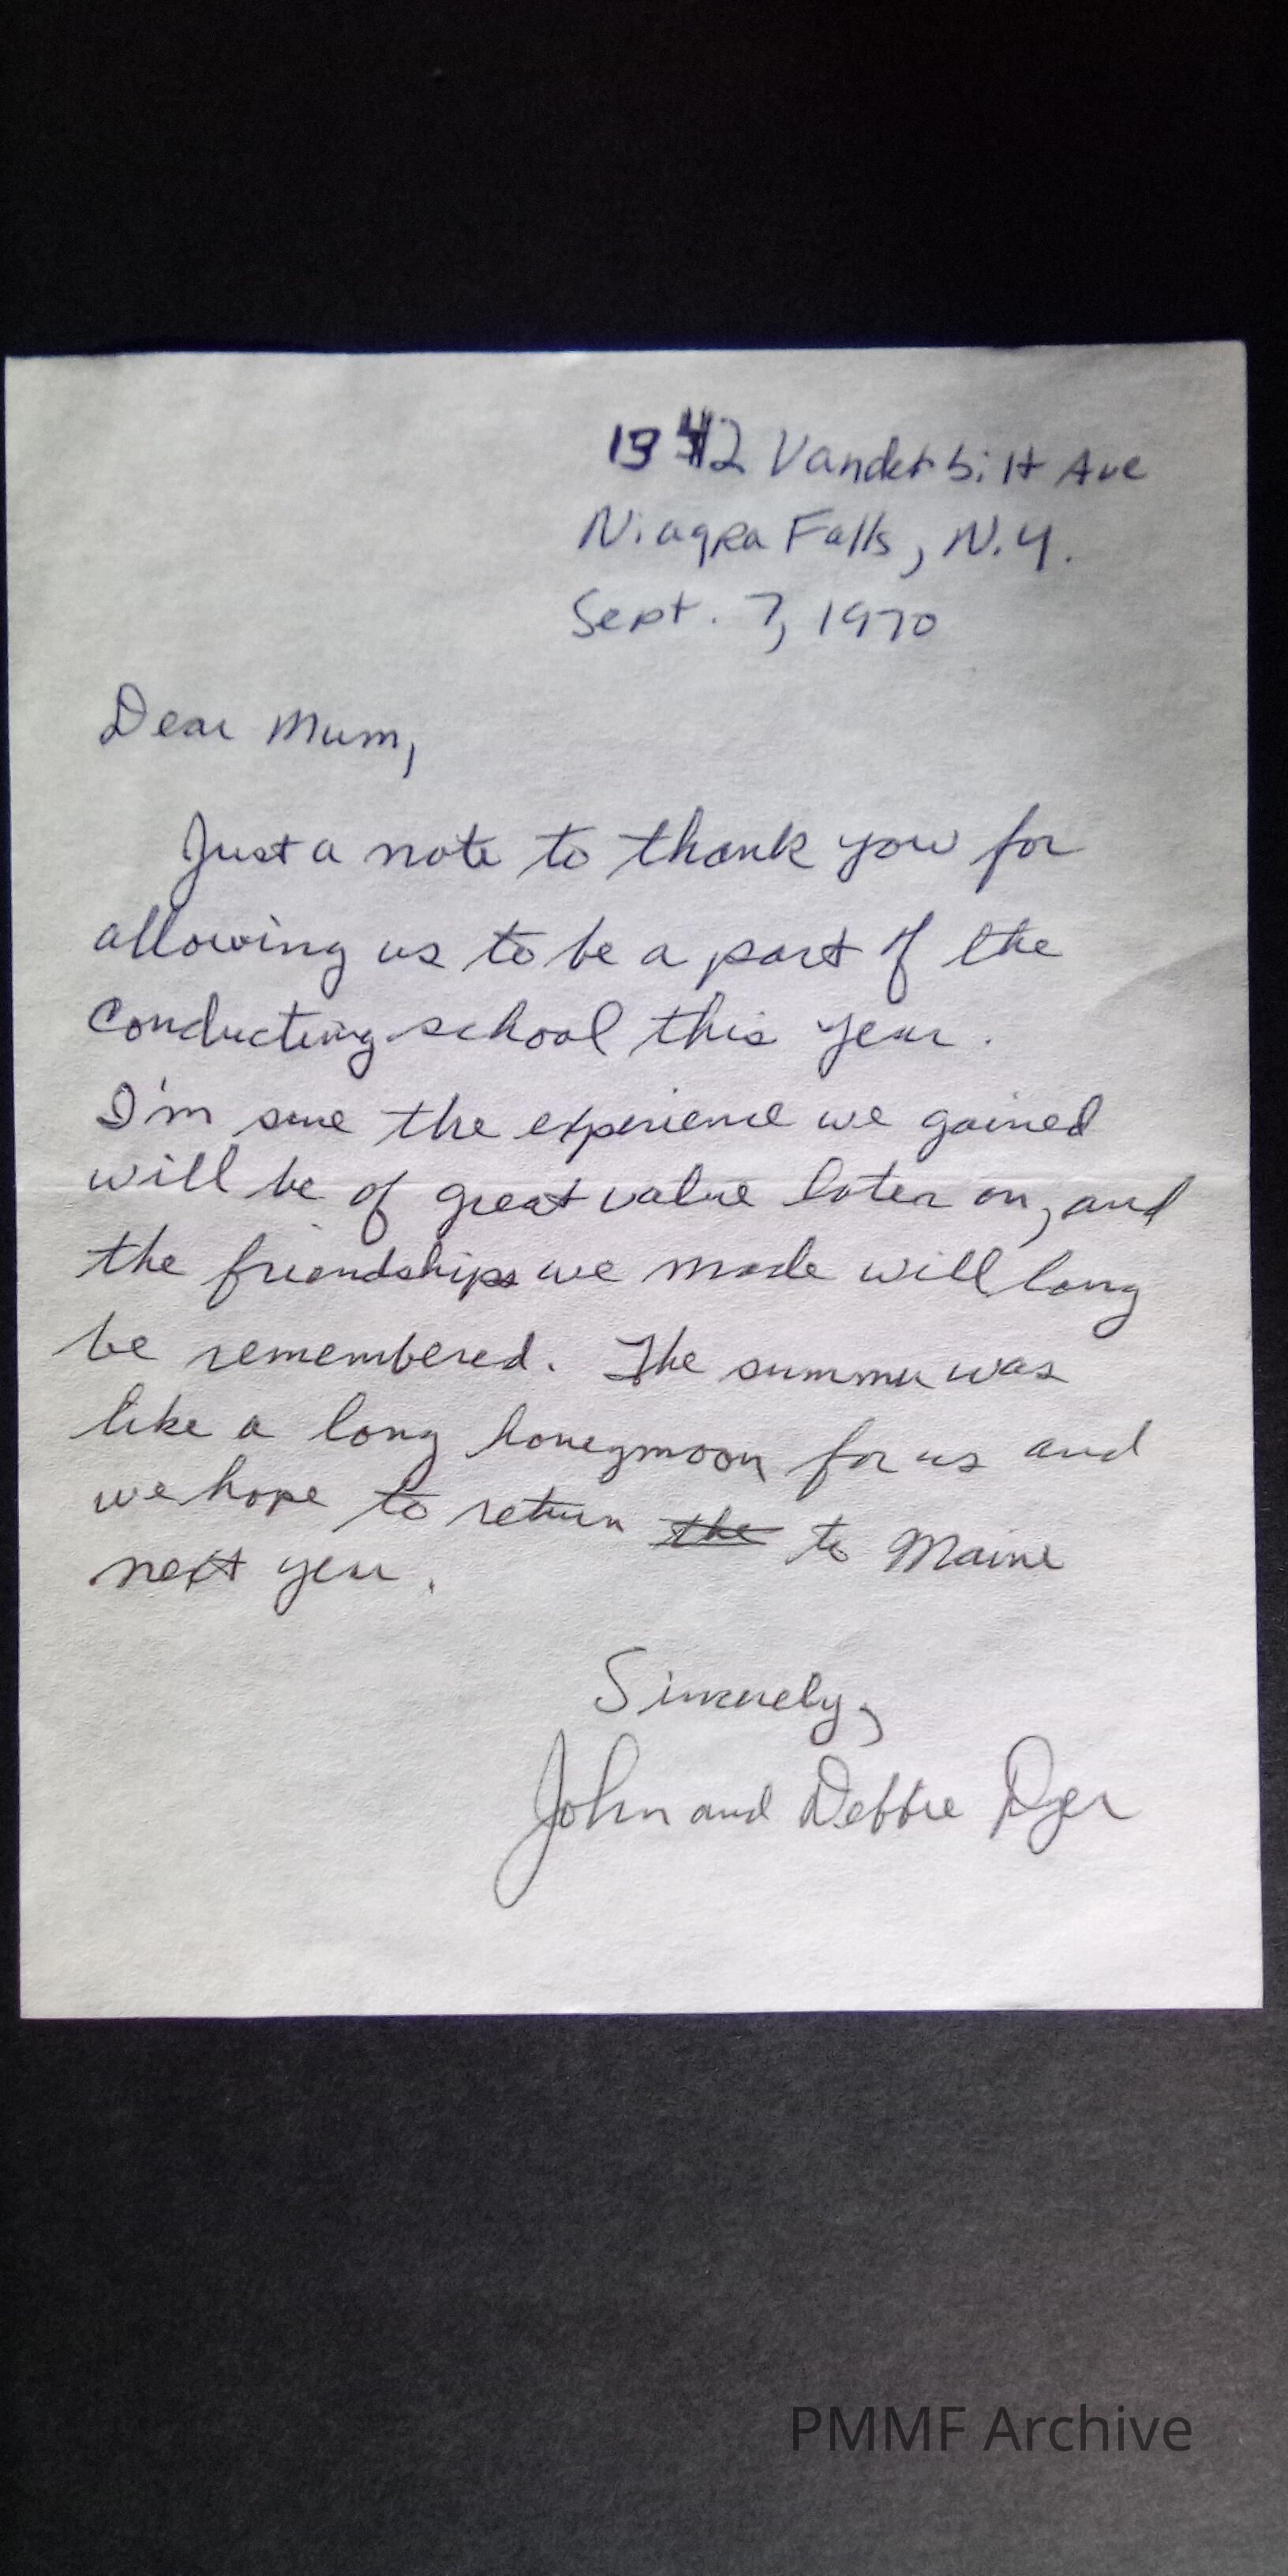 1342 Vanderbilt Ave
Niagra Falls, N.Y.
Sept. 7, 1970
Dear Mum,
Just a note to thank you for
allowing us to be a part of the
Conducting school this year.
I'm sure the experience we gained
will be of great value later on, and
the friendships we made will long
be remembered. The summer was
like a long honeymoon for us and
we hope to return the to Maine
next year.
Sincerely,
John and Debbie Dyer
PMMF Archive